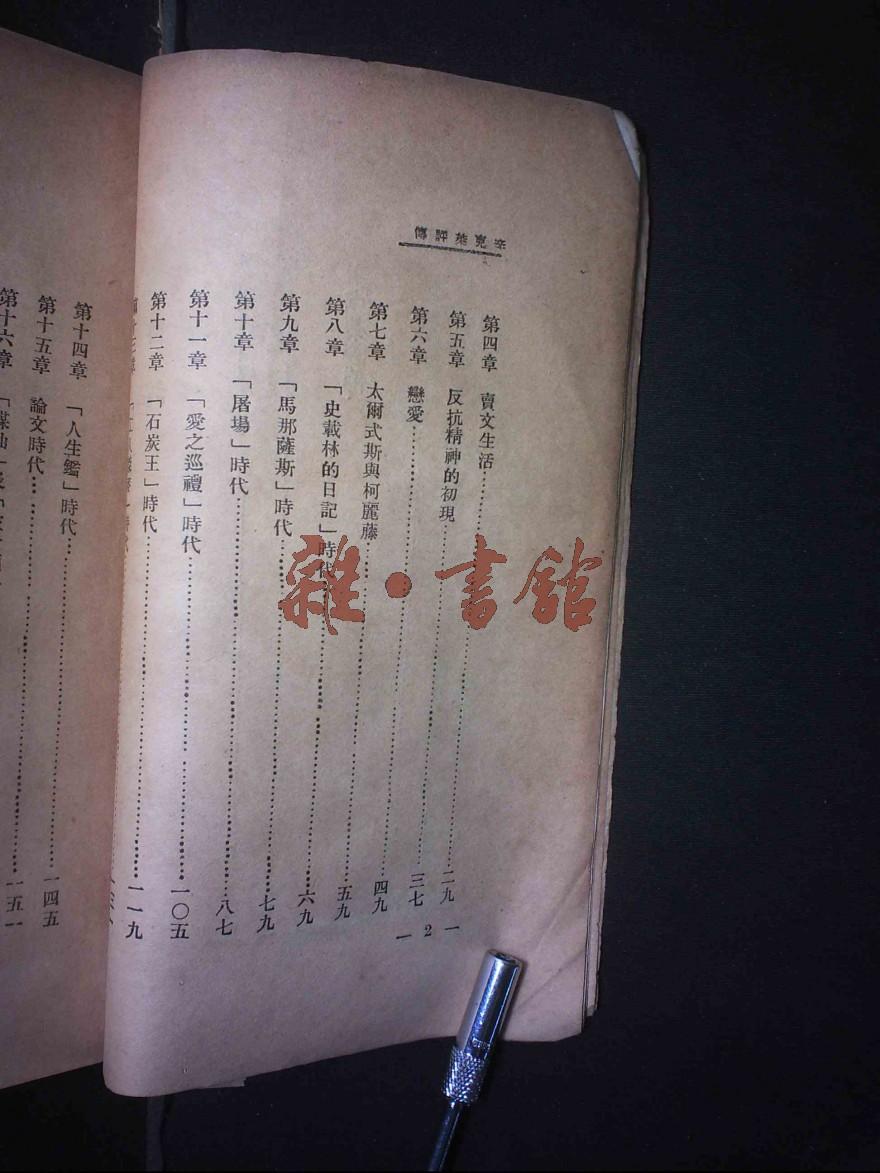 辛克萊評傳
第四章 賣文生活……二九
第五章 反抗精神的初現……三七
第六章 戀愛……四九
第七章 太爾式斯與柯麗藤……五九
第八章 「史載林的日記」時代……六九
第九章 「馬那薩斯」時代……七九
第十章 「屠場」時代……八七
第十一章 「愛之巡禮」時代……一〇五
第十二章 「石炭王」時代……一一九
— 2 —
第十四章 「人生鑑」時代……一四五
第十五章 論文時代……一五一
第十六章
雜·書館